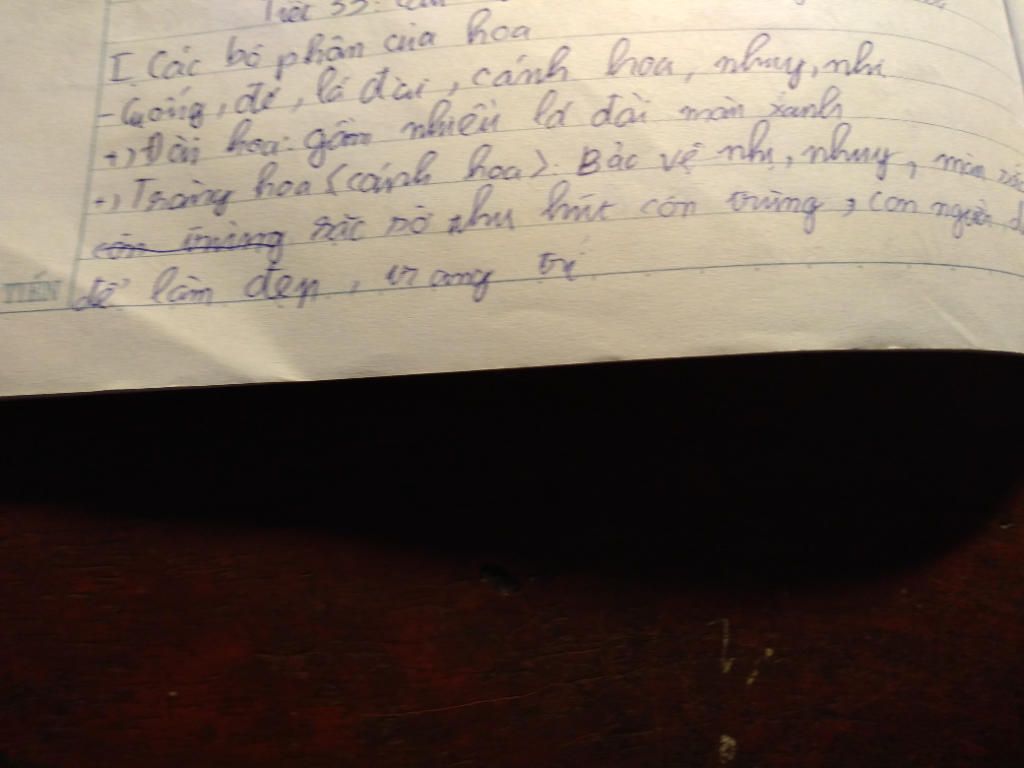 Tiết 33:
I Các bộ phận của hoa
- Cuống, đế, lá đài, cánh hoa, nhụy, nhị
+) Đài hoa: gồm nhiều lá đài màn xanh
+) Tràng hoa (cánh hoa): Bảo vệ nhị, nhụy, màn
sặc sỡ thu hút côn trùng, con người
để làm đẹp, trang trí
TIẾN